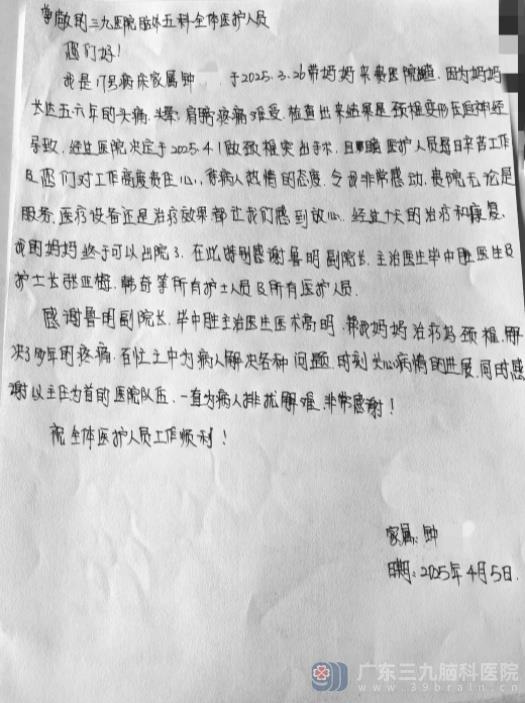 尊敬的三九医院临床五科全体医护人员
您们好!
我是17号病床家属钟 于2025.3.26带妈妈来贵医院 因为妈妈
长达五六年的头痛、头晕、肩膀疼痛难受,检查出来结果是颈椎变形压迫神经
导致,经过医院决定于2025.4.1做颈椎突出手术,目睹 医护人员每日辛苦工作
及您们对工作高度责任心,待病人热情的态度,令我非常感动,贵院无论是
服务、医疗设备还是治疗效果都让我们感到放心,经过十天的治疗和康复,
我的妈妈终于可以出院了,在此特别感谢鲁明副院长、主治医生毕中胜医生及
护士长张亚梅、韩奇等所有护士人员及所有医护人员.
感谢鲁明副院长、毕中胜主治医生医术高明,帮我妈妈治疗好颈椎,解
决了多年的疼痛,百忙之中为病人解决各种问题,时刻关心病情的进展,同时感
谢以主任为首的医院队伍,一直为病人排忧解难,非常感谢!
祝全体医护人员工作顺利!
家属:钟
日期:2025年4月5日.
广东三九脑科医院
www.39brain.cn